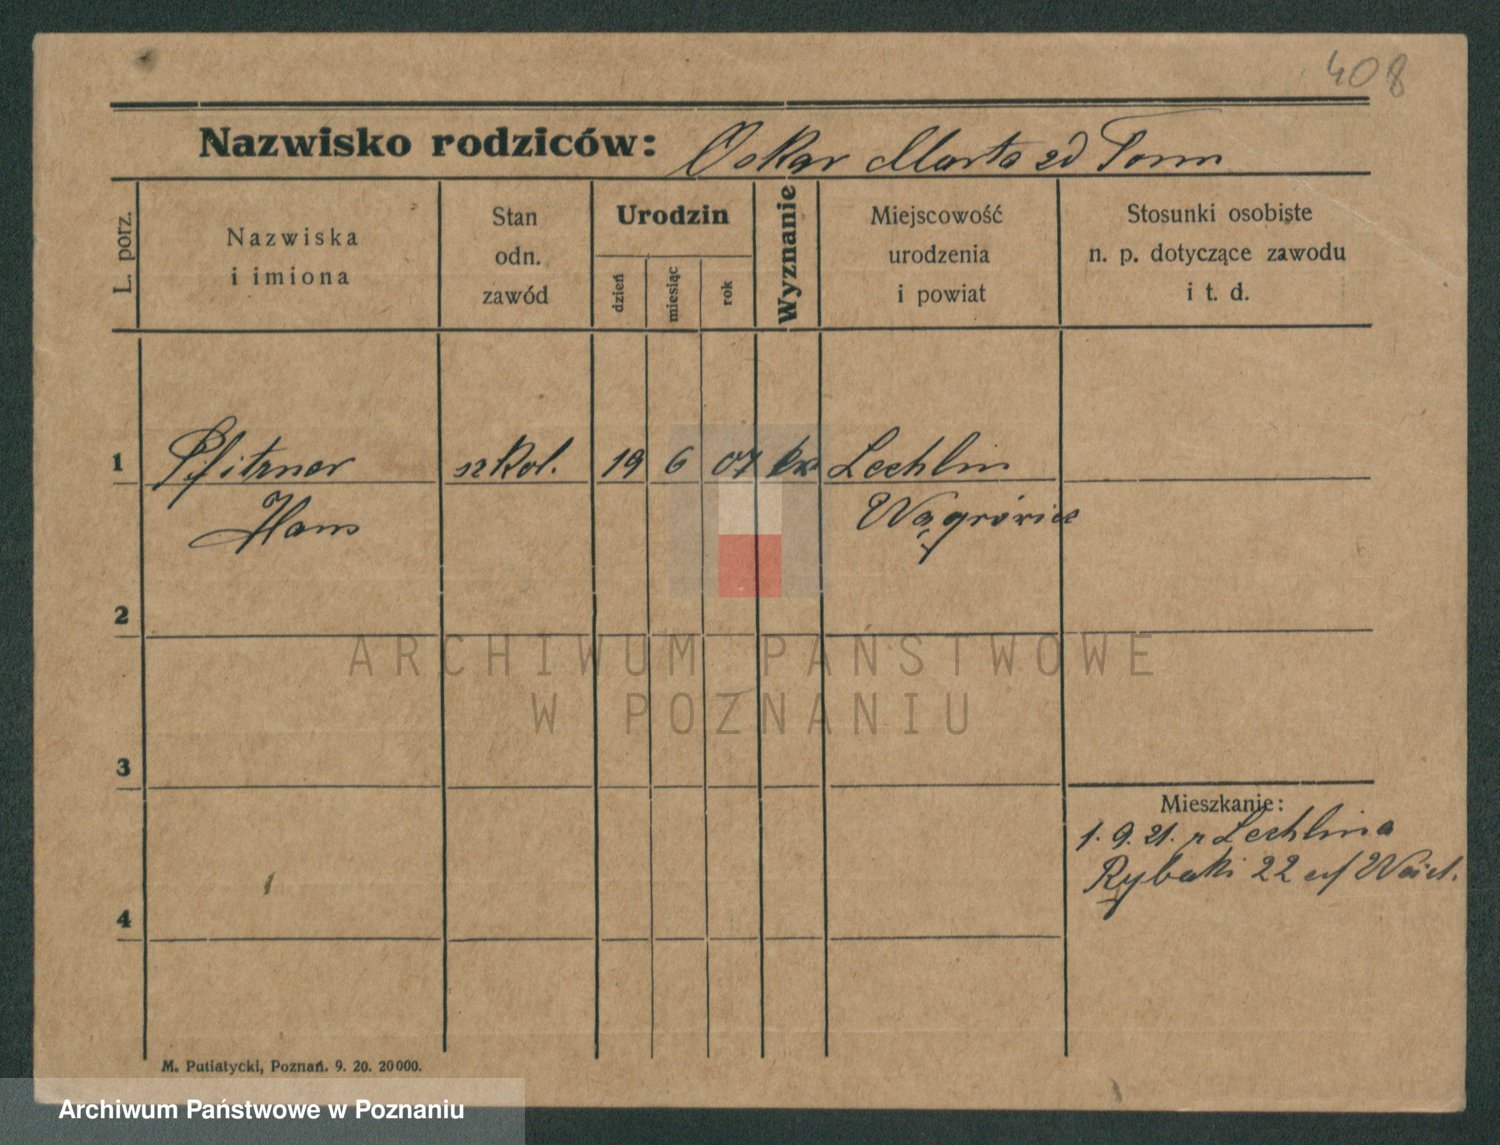 408
Nazwisko rodziców: Oskar Marta zd Tonn
L. porz.
Nazwiska
i imiona
Stan
odn.
zawód
Urodzin
dzień
miesiąc
rok
Wyznanie
Miejscowość
urodzenia
i powiat
Stosunki osobiste
n. p. dotyczące zawodu
i t. d.
1 Pfitzner szkol. 19 6 07 Lechlin
Hans Wągrówiec
2
ARCHIWUM PAŃSTWOWE
W POZNANIU
3
Mieszkanie:
1. 9. 21. z Lechlina
Rybaki 22
4
M. Putiatycki, Poznań. 9. 20. 20000.
Archiwum Państwowe w Poznaniu